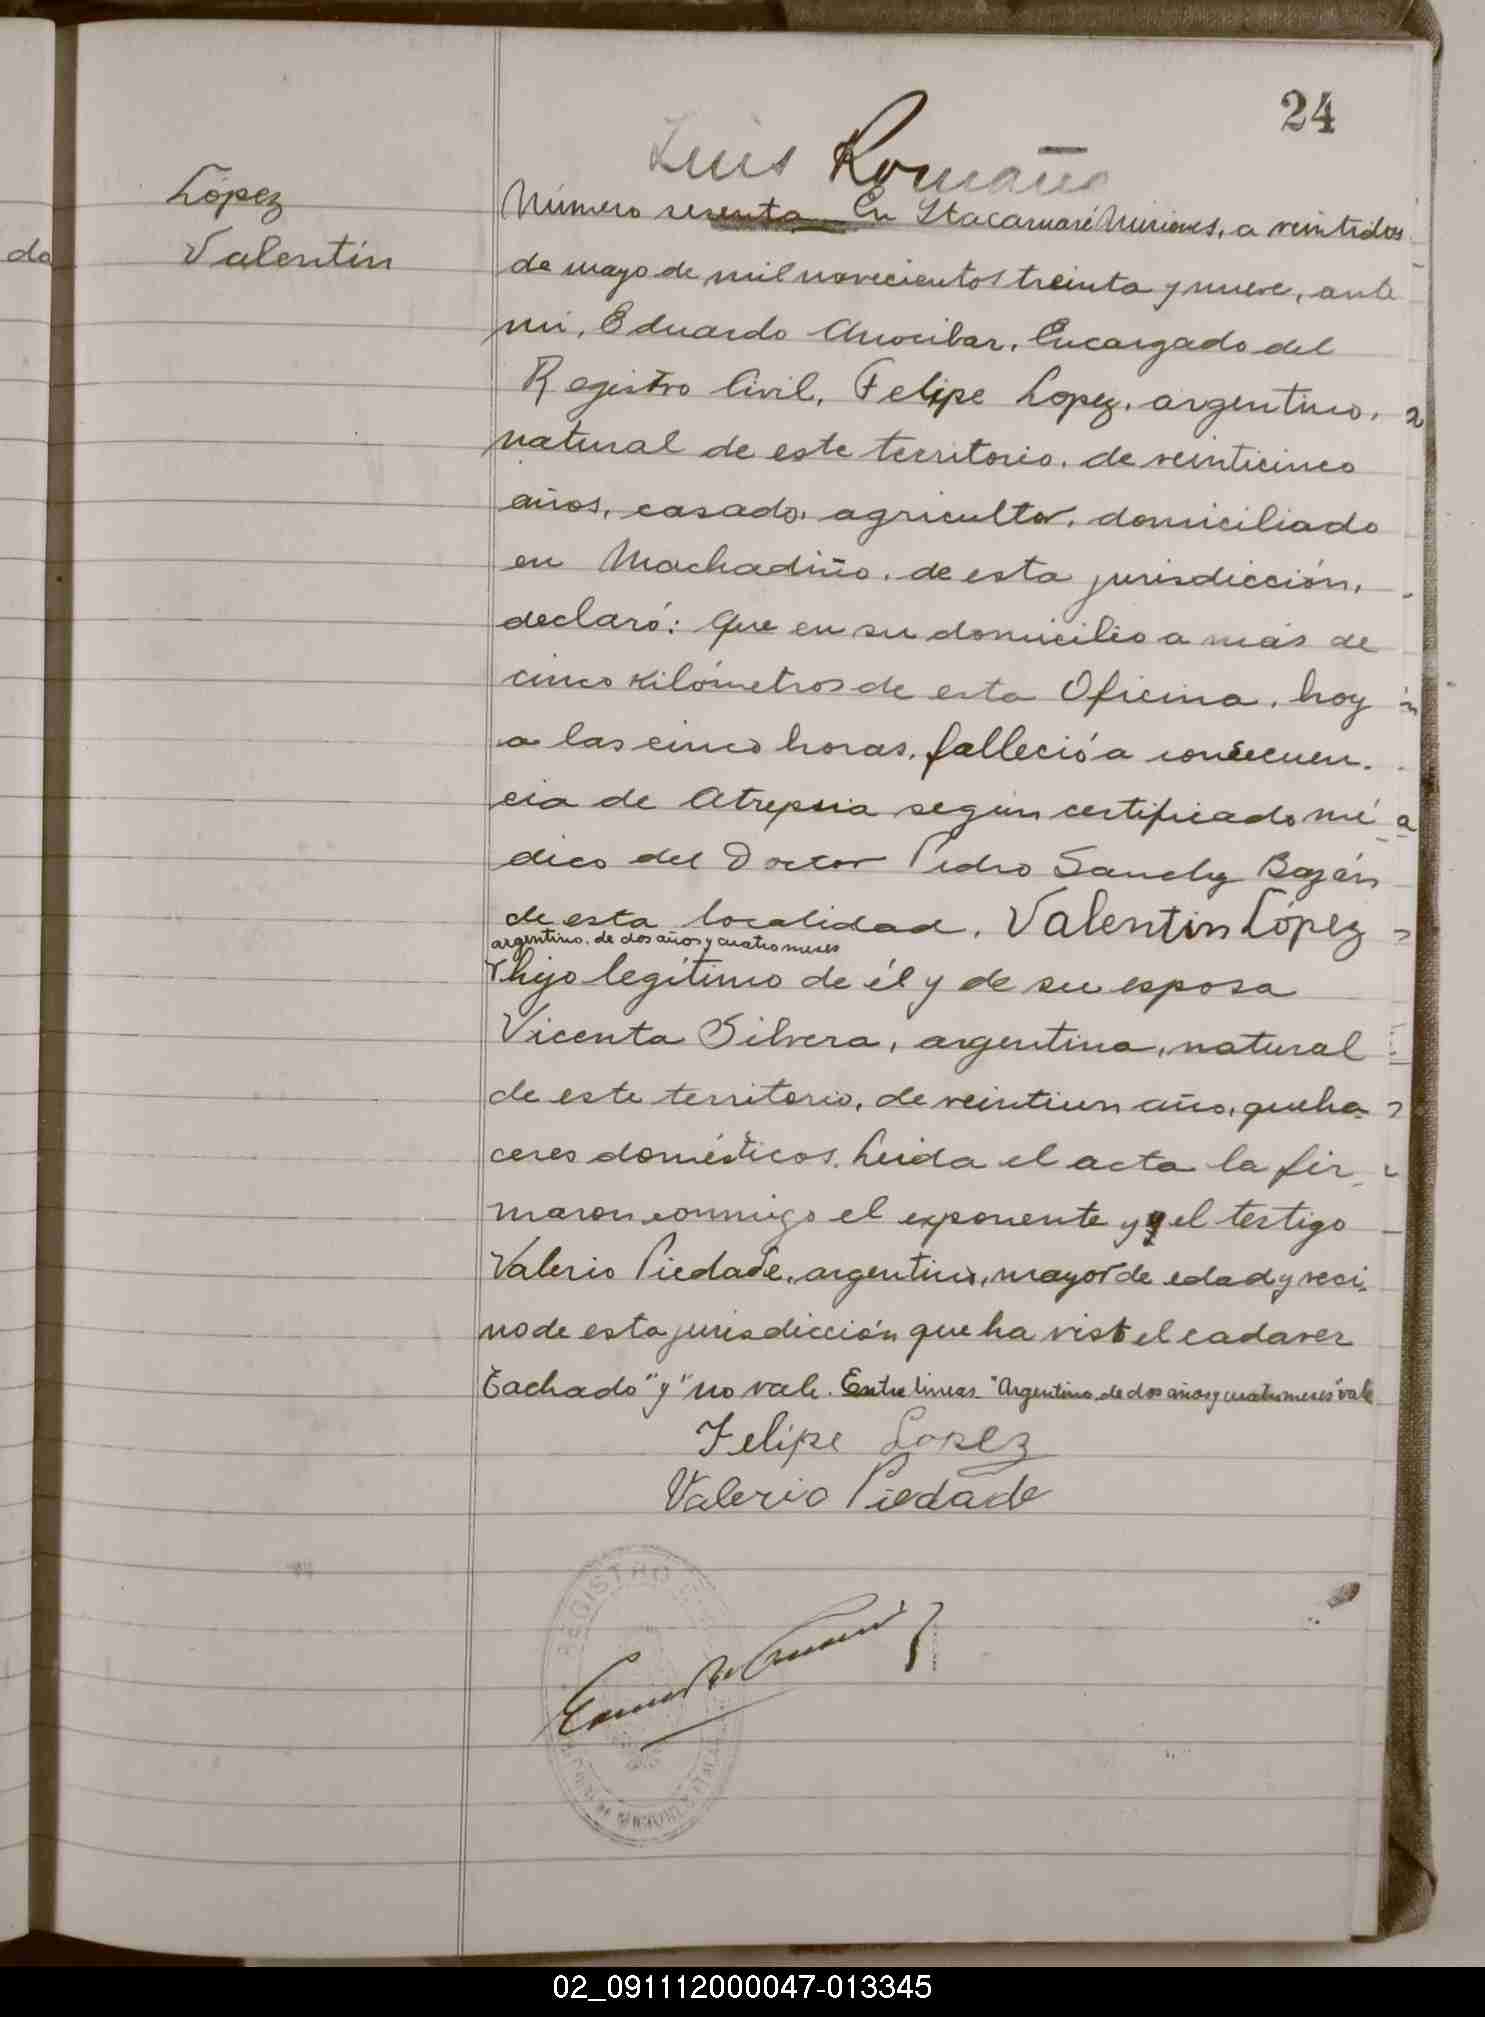 24
Luis Romano
López
Valentín
do
Número sesenta. En Itacaruaré Misiones, a veintidos
de mayo de mil novecientos treinta y nueve, ante
mi, Eduardo Encargado del
Registro Civil, Felipe Lopez, argentino,
natural de este territorio, de veinticinco
años, casado, agricultor, domiciliado
en Machadiño, de esta jurisdicción,
declaró: Que en su domicilio a más de
cinco kilómetros de esta Oficina, hoy
a las cinco horas, falleció a consecuen-
cia de Atrepsia según certificado mé
dico del Doctor Pedro Sanchz Bazán
de esta localidad, Valentin López
argentino, de dos años y cuatro meses
hijo legítimo de él y de su esposa
Vicenta Silvera, argentina, natural
de este territorio, de veintiun año, queha-
ceres domésticos. Leida el acta la fir-
maron conmigo el exponente y y el testigo
Valerio Piedade, argentino, mayor de edad y veci-
no de esta jurisdicción que ha visto el cadaver
Tachado "y" no vale. Entre lineas "Argentino, de dos años y cuatro meses" vale
Felipe Lopez
Valerio Piedade
REGISTRO
02_091112000047-013345